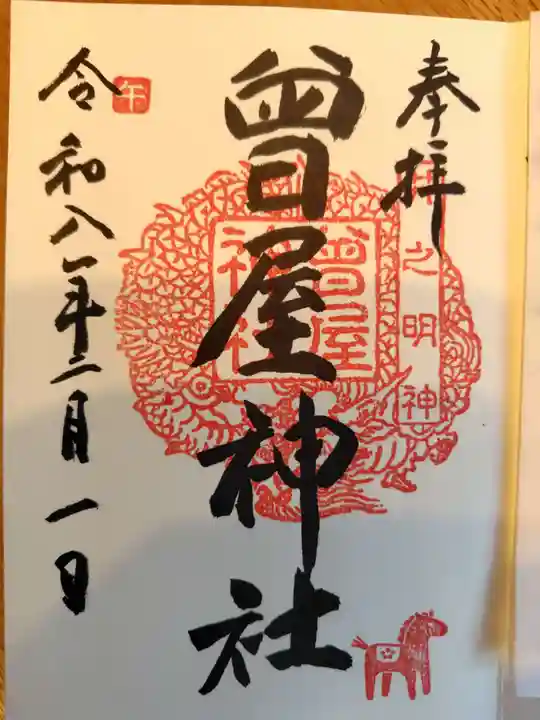 奉拝
之明神
曾屋神社
曾屋
神社
令和八年二月一日
午